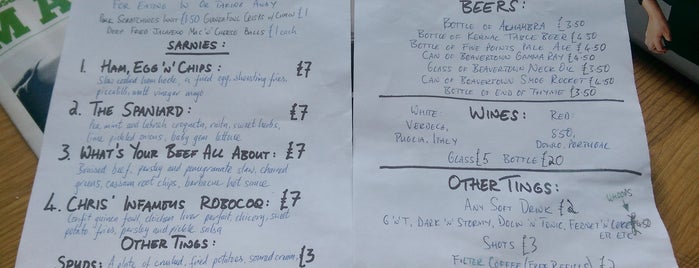 MA
FOR EATING IN OR TAKING AWAY
PORK SCRATCHINGS £1.50 GUINEA FOWL CRISPS £1
DEEP FRIED JALAPENO MAC 'N' CHEESE BALLS £1 each
SARNIES:
1. HAM, EGG 'N' CHIPS: £7
Slow cooked ham hock, a fried egg, shoestring fries,
piccalilli, malt vinegar mayo
2. THE SPANIARD: £7
Pea, mint and labneh croqueta, rocket, sweet herbs,
pickled onions, baby gem lettuce
3. WHAT'S YOUR BEEF ALL ABOUT: £7
Braised beef, parsley and pomegranate slaw, charred
greens, cassava root chips, barbecue hot sauce
4. CHRIS' INFAMOUS ROBOCOQ: £7
Confit guinea fowl, chicken liver parfait, chicory, sweet
potato fries, parsley and pickle salsa
OTHER TINGS:
SPUDS: A plate of crushed, fried potatoes, soured cream, £3
BEERS:
BOTTLE OF ALHAMBRA £3.50
BOTTLE OF KERNAL TABLE BEER £4.50
BOTTLE OF FIVE POINTS PALE ALE £4.50
CAN OF BEAVERTOWN GAMMA RAY £4.50
GLASS OF BEAVERTOWN NECK OIL £3.50
CAN OF BEAVERTOWN SMOG ROCKET £4.50
BOTTLE OF END OF THYME £3.50
WINES:
WHITE: RED:
VERDECA, 850,
PUGLIA, ITALY DOURO, PORTUGAL
GLASS £5 BOTTLE £20
OTHER TINGS:
WHOOPS
ANY SOFT DRINK £2
G'N'T, DARK 'N' STORMY, DOLIN 'N' TONIC, FERNET 'N' COKE £6.50
ETC ETC
SHOTS £3
FILTER COFFEE (FREE REFILLS) £2